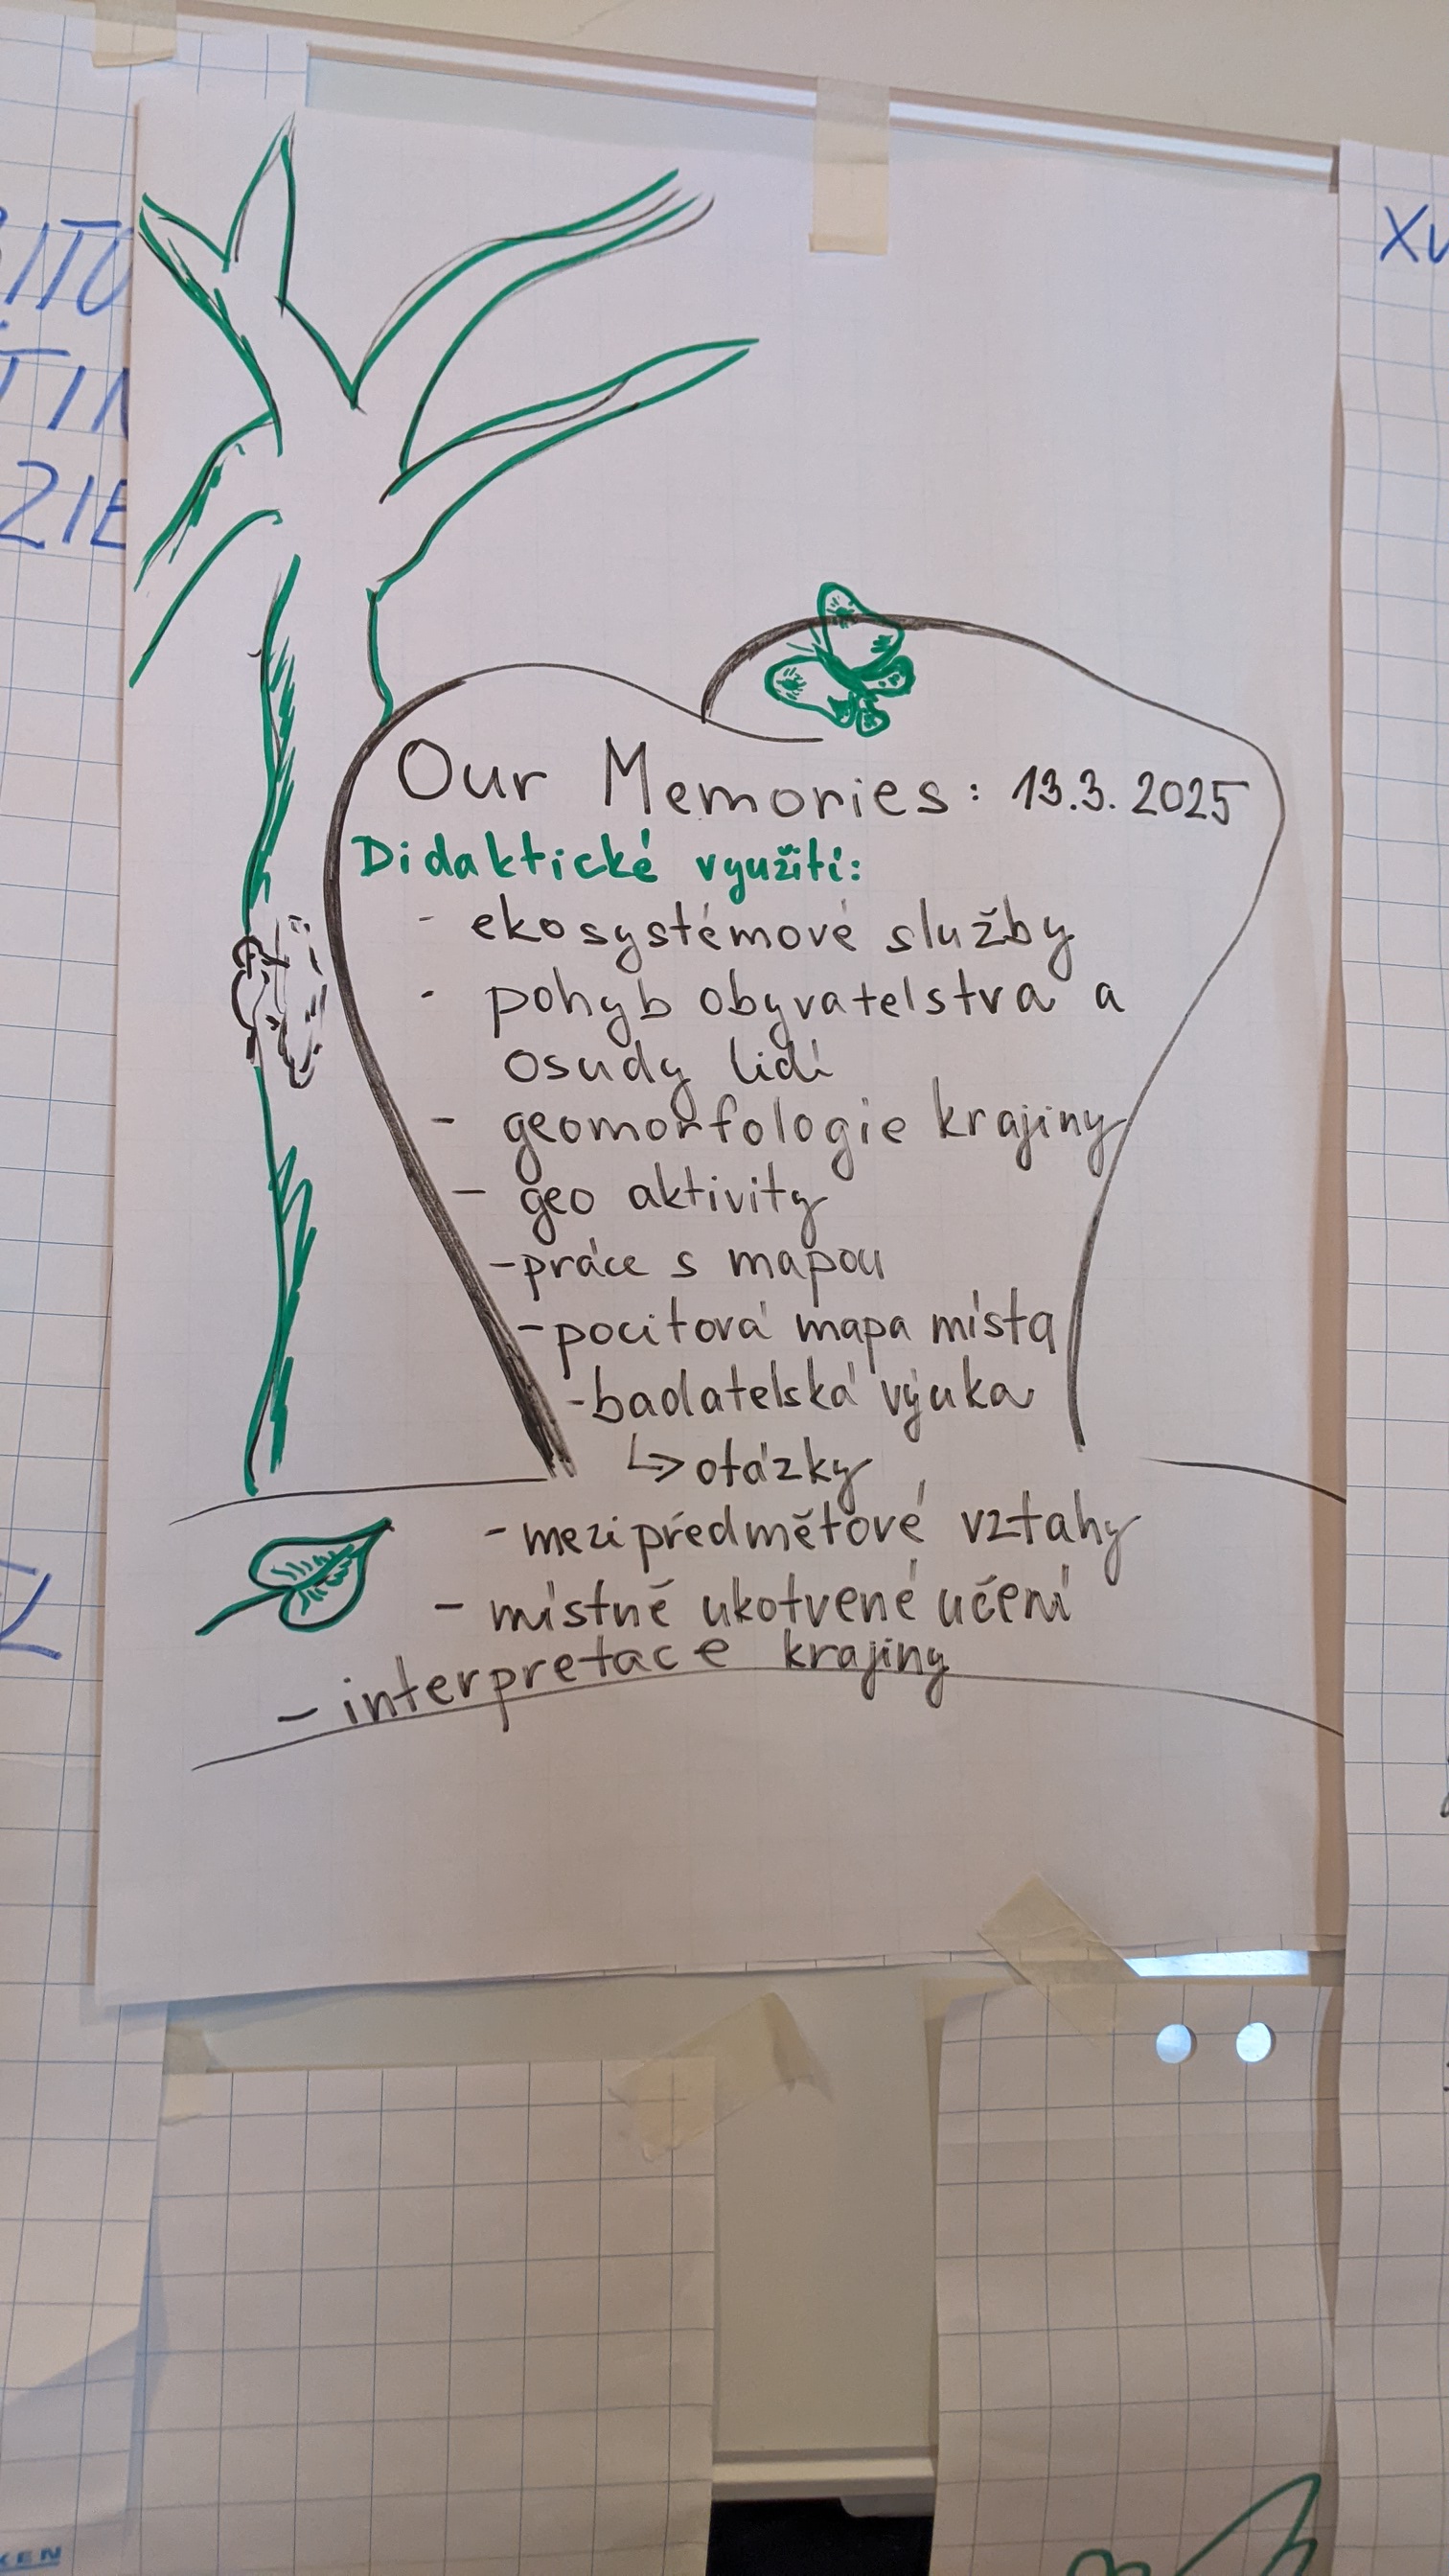 Our Memories: 13.3. 2025
Didaktické využití:
- ekosystémové služby
- pohyb obyvatelstva a
osudy lidí
- geomorfologie krajiny
- geo aktivity
- práce s mapou
- pocitová mapa místa
- badatelská výuka
↳ otázky
- mezipředmětové vztahy
- místně ukotvené učení
- interpretace krajiny